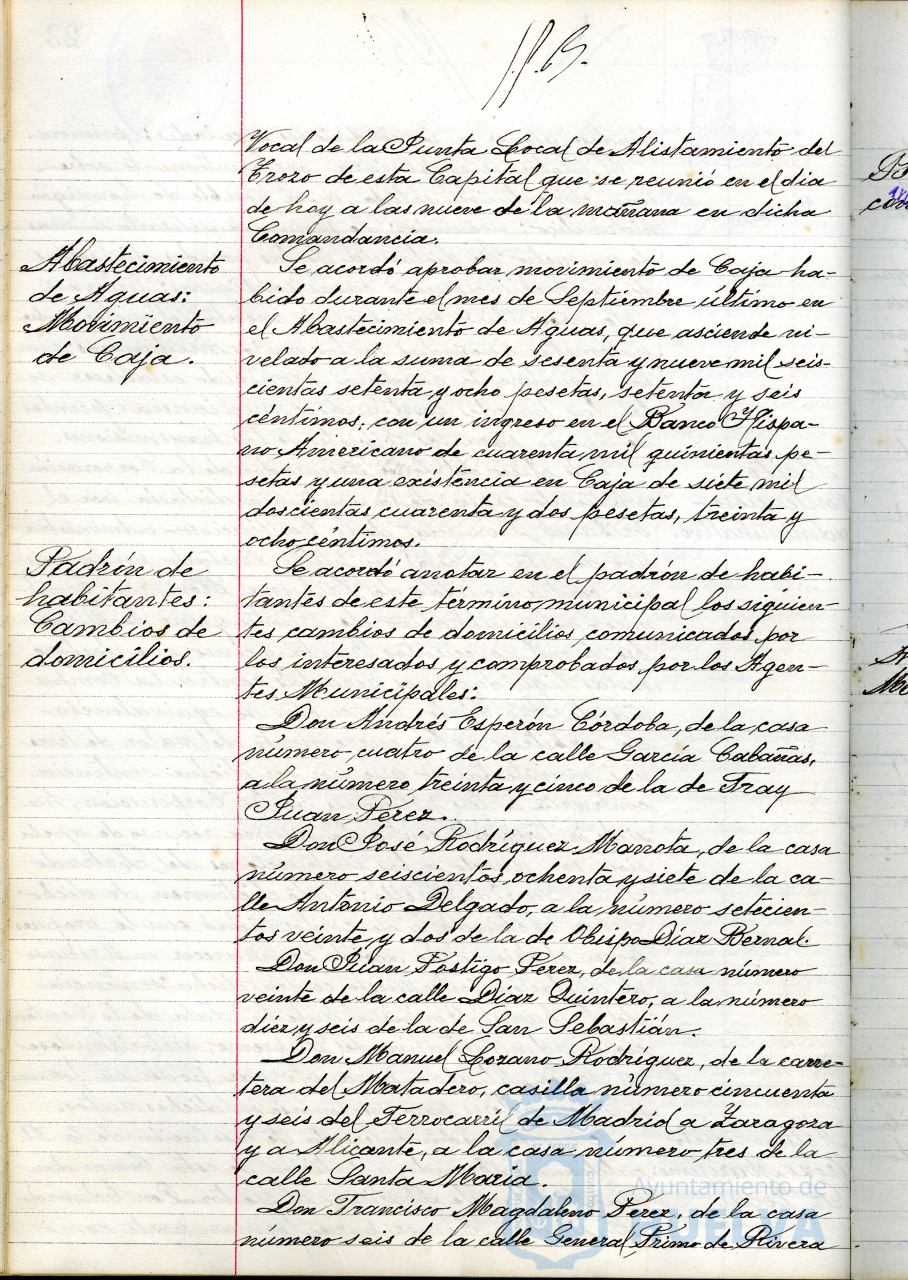 Vocal de la Junta Local de Alistamiento del
Trozo de esta Capital que se reunió en el dia
de hoy a las nueve de la mañana en dicha
Comandancia.
Abastecimiento
de Aguas:
Movimiento
de Caja.
Se acordó aprobar movimiento de Caja ha-
bido durante el mes de Septiembre último en
el Abastecimiento de Aguas, que asciende ni-
velado a la suma de sesenta y nueve mil seis-
cientas setenta y ocho pesetas, setenta y seis
céntimos; con un ingreso en el Banco Hispa-
no Americano de cuarenta mil quinientas pe-
setas y una existencia en Caja de siete mil
doscientas cuarenta y dos pesetas, treinta y
ocho céntimos.
Padrón de
habitantes:
Cambios de
domicilios.
Se acordó anotar en el padrón de habi-
tantes de este término municipal los siguien-
tes cambios de domicilios, comunicados por
los interesados y comprobados por los Agen-
tes Municipales:
Don Andrés Esperón Córdoba, de la casa
número cuatro de la calle García Cabañas,
a la número treinta y cinco de la de Fray
Juan Pérez.
Don José Rodríguez Marrota, de la casa
número seiscientos ochenta y siete de la ca-
lle Antonio Delgado, a la número setecien-
tos veinte y dos de la de Obispo Díaz Bernal.
Don Juan Postigo Pérez, de la casa número
veinte de la calle Díaz Quintero, a la número
diez y seis de la de San Sebastián.
Don Manuel Lozano Rodríguez, de la carre-
tera del Matadero, casilla número cincuenta
y seis del Ferrocarril de Madrid a Zaragoza
y a Alicante, a la casa número tres de la
calle Santa María.
Don Francisco Magdaleno Pérez, de la casa
número seis de la calle General Primo de Rivera
Ayuntamiento de
HUELVA